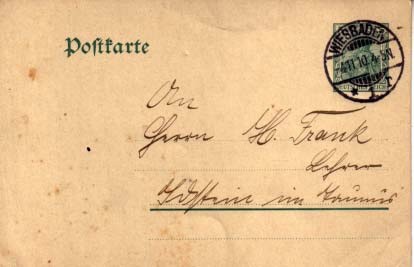 Postkarte
WIESBADEN
An
Herrn H. Frank
Lehrer
Idstein im Taunus